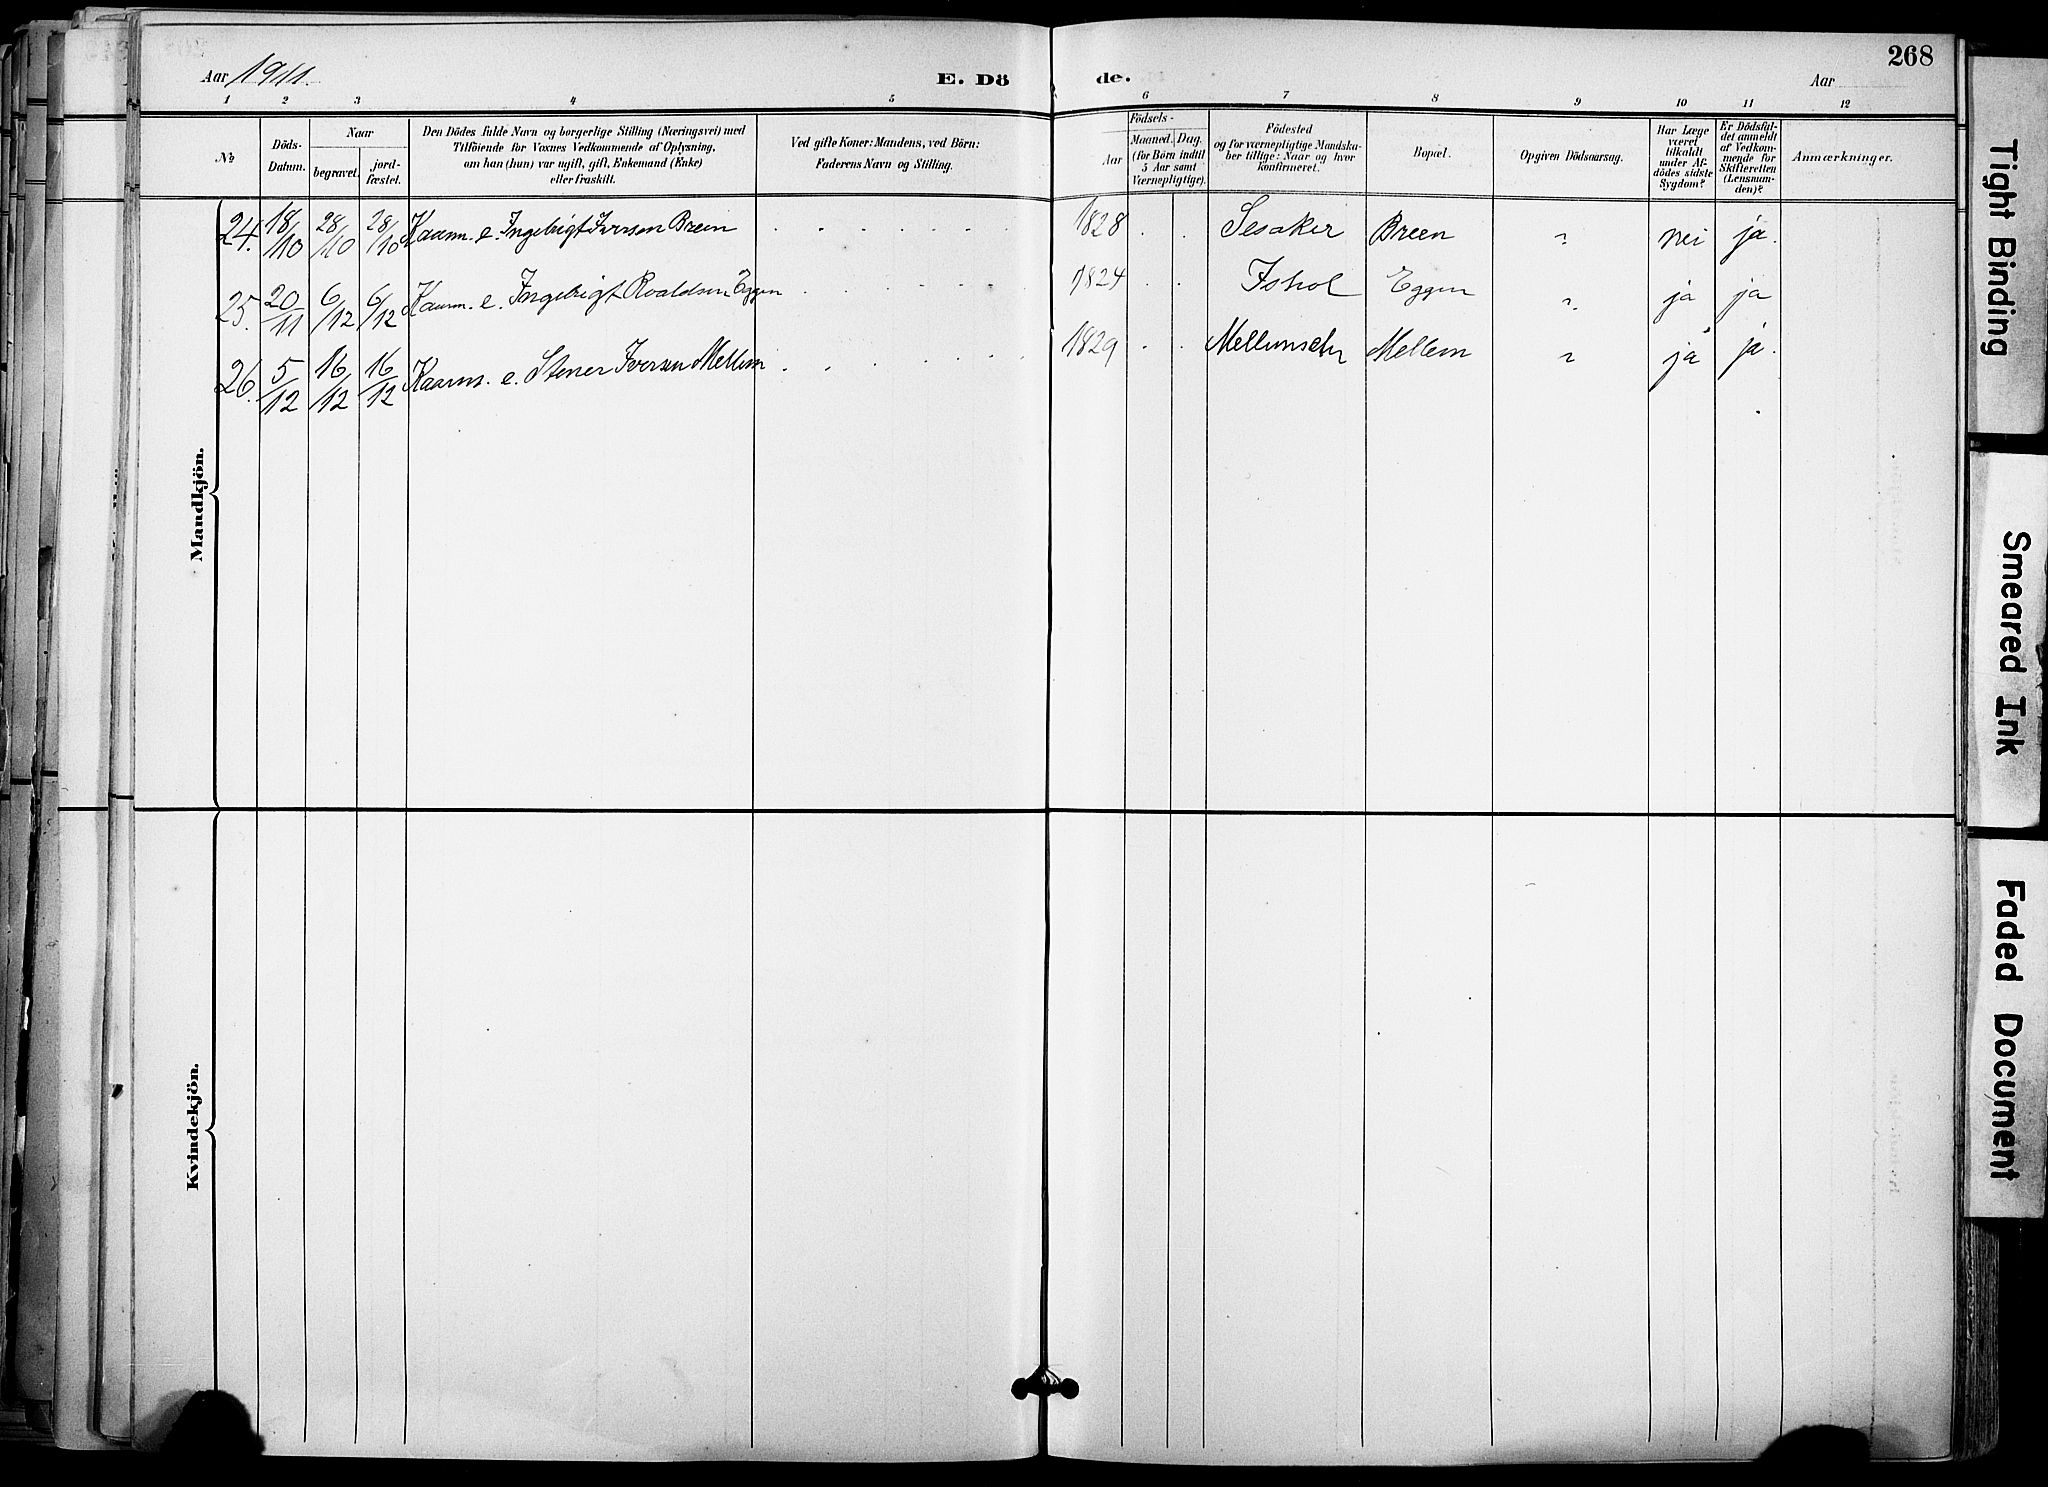 Aar 1911. E. Dö de. Aar 268
1 2 3 4 5 6 7 8 9 10 11 12
№
Döds-Datum.
Naar
begravet. jord-fæstet.
Den Dödes fulde Navn og borgerlige Stilling (Næringsvei) med
Tilföiende for Voxnes Vedkommende af Oplysning,
om han (hun) var ugift, gift, Enkemand (Enke)
eller fraskilt.
Ved gifte Koner: Mandens, ved Börn:
Faderens Navn og Stilling.
Födsels-
Aar Maaned. Dag.
(for Börn indtil
5 Aar samt
Værnepligtige).
Födested
og for værnepligtige Mandska-
ber tillige: Naar og hvor
konfirmeret.
Bopæl.
Opgiven Dödsaarsag.
Har Læge
været
tilkaldt
under Af-
dödes sidste
Sygdom?
Er Dödsfal-
det anmeldt
af Vedkom-
mende for
Skifteretten
(Lensman-
den)?
Anmærkninger.
Mandkjön.
24. 18/10 28/10 28/10 Kaarm. e. Ingebrigt Iversen Breen 1828 Sesaker Breen " nei ja.
25. 20/11 6/12 6/12 Kaarm. e. Ingebrigt Roaldsen Eggen 1824 Ishol Eggen " ja ja
26. 5/12 16/12 16/12 Kaarm. e. Stener Iversen Mellem 1829 Mellem " ja ja.
Kvindekjön.
Tight Binding
Smeared Ink
Faded Document